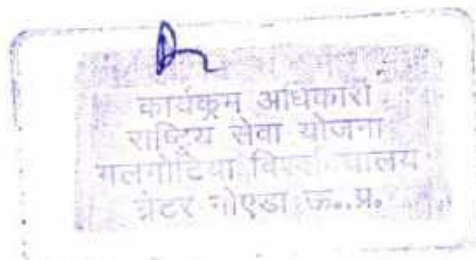 कार्यक्रम अधिकारी
राष्ट्रिय सेवा योजना
गलगोटिया
ग्रेटर नोएडा उ..प्र.